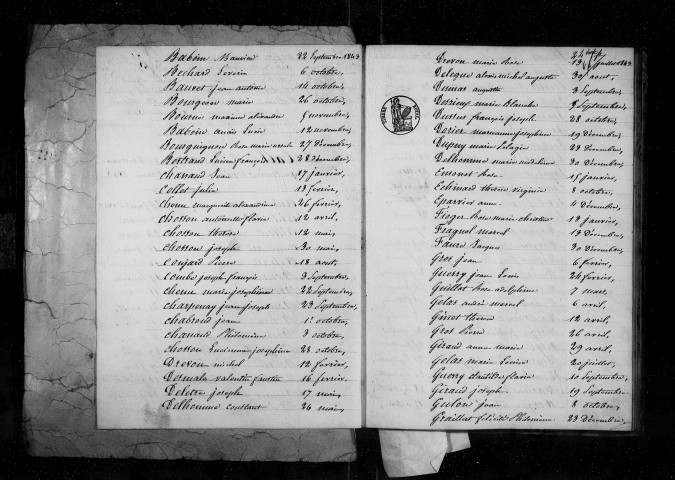 Baboin Maurice 22 Septembre 1843
Bechard Severin 6 octobre,
Bauret jean antoine 14 octobre,
Bourgeon marie 26 octobre,
Bourne maxime alexandre 9 novembre,
Baboin anais Lucie 12 novembre,
Bourguignon Rose marie 27 Décembre,
Bertrand Lucien françois 28 Décembre,
Chanaud Jean 17 janvier,
Collet julie 13 fevrier,
Chome marguerite alexandrine 26 fevrier,
Chosson antoinette flavie 12 avril,
Chosson therese 12 mai,
Chosson joseph 30 mai,
Coujard Pierre 18 aout,
Combe joseph françois 3 Septembre,
Chome marie josephine 22 Septembre,
Charpenay jean joseph 23 Septembre,
Chabroud jeanne 1er octobre,
Chanaud Philomène 3 octobre,
Chosson Josephine 28 octobre,
Drevon michel 12 fevrier,
Dormala valentin faustin 16 fevrier,
Delete joseph 17 mai,
Delhomme constant 26 mai,
Drevon marie Rose 13 juillet 1843
Deleque alexis michel auguste 30 aout,
Dumas augustin 3 Septembre,
Derieux marie Blanche 9 Septembre,
Dussus françois joseph 28 octobre,
Dozier marianne josephine 19 Décembre,
Dupuy marie Pelagie 23 Décembre,
Delhomme marie madeleine 30 Décembre,
Emonet Rose 15 janvier,
Echinard therese virginie 8 octobre,
Eparvier anne 4 Décembre,
Fioger Rose marie christine 13 janvier,
Fragnol marcel 13 Décembre,
Faure Jacques 30 Décembre,
Gros jean 6 fevrier,
Guerry jean Louis 24 fevrier,
Guillot Rose delphine 7 mars,
Gelas andré marcel 6 avril,
Ginot therese 12 avril,
Gros Pierre 26 avril,
Giraud anne marie 29 avril,
Gelas marie Louise 20 juillet,
Guerry clotilde flavie 10 Septembre,
Giraud joseph 19 Septembre
Gulon jean 8 octobre,
Graillat felicité Philomène 23 Décembre,